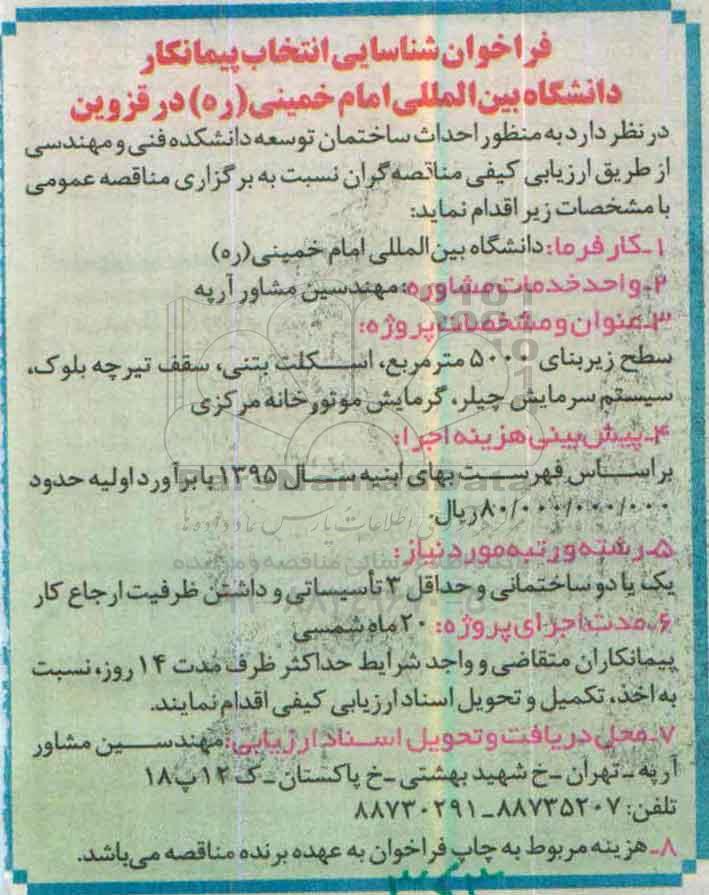 فراخوان شناسایی انتخاب پیمانکار
دانشگاه بین المللی امام خمینی(ره) در قزوین
در نظر دارد به منظور احداث ساختمان توسعه دانشکده فنی و مهندسی
از طریق ارزیابی کیفی مناقصه گران نسبت به برگزاری مناقصه عمومی
با مشخصات زیر اقدام نماید:
۱ـ کارفرما: دانشگاه بین المللی امام خمینی(ره)
۲ـ واحد خدمات مشاوره: مهندسین مشاور آرپه
۳ـ عنوان و مشخصات پروژه:
سطح زیربنای ۵۰۰۰ مترمربع، اسکلت بتنی، سقف تیرچه بلوک،
سیستم سرمایش چیلر، گرمایش موتورخانه مرکزی
۴ـ پیش بینی هزینه اجرا:
براساس فهرست بهای ابنیه سال ۱۳۹۵ با برآورد اولیه حدود
۸۰/۰۰۰/۰۰۰/۰۰۰ ریال.
۵ـ رشته و رتبه مورد نیاز:
یک یا دو ساختمانی و حداقل ۳ تأسیساتی و داشتن ظرفیت ارجاع کار
۶ـ مدت اجرای پروژه: ۲۰ ماه شمسی
پیمانکاران متقاضی و واجد شرایط حداکثر ظرف مدت ۱۴ روز، نسبت
به اخذ، تکمیل و تحویل اسناد ارزیابی کیفی اقدام نمایند.
۷ـ محل دریافت و تحویل اسناد ارزیابی: مهندسین مشاور
آرپه ـ تهران ـ خ شهید بهشتی ـ خ پاکستان ـ ک ۱۲ پ ۱۸
تلفن: ۸۸۷۳۵۲۰۷ ـ ۸۸۷۳۰۲۹۱
۸ـ هزینه مربوط به چاپ فراخوان به عهده برنده مناقصه می باشد.